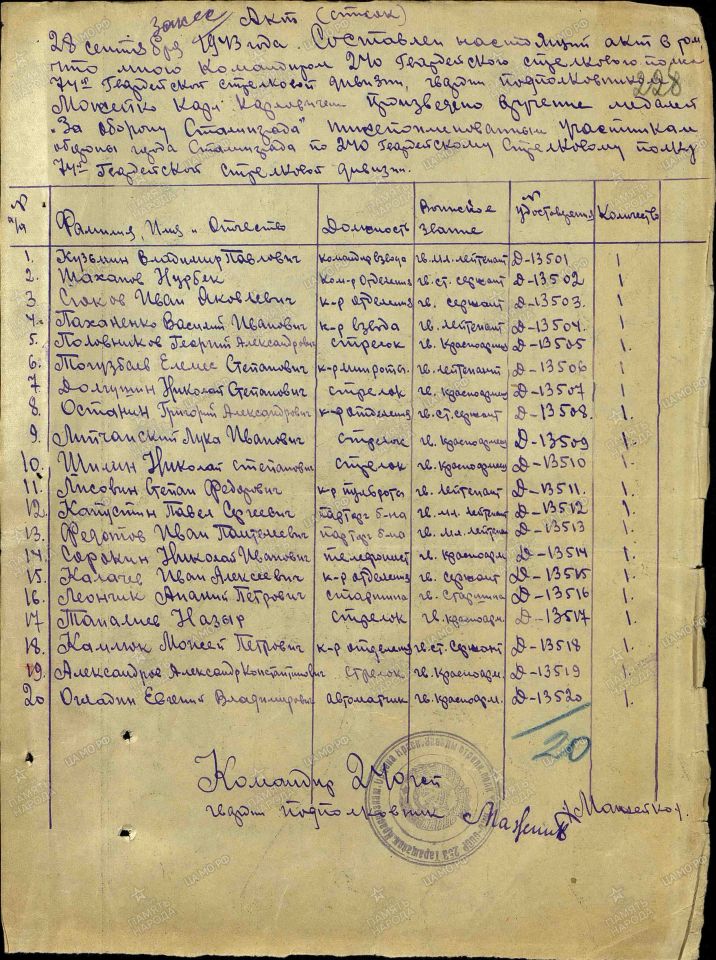 Акт (список)
28 сентября 1943 года Составлен настоящий акт в том,
что мною командиром 240 Гвардейского стрелкового полка
74й Гвардейской стрелковой дивизии, гвардии подполковником
228
Мажейко Карл Карловичем произведено вручение медалей
"За оборону Сталинграда" нижепоименованным участникам
обороны города Сталинграда по 240 Гвардейскому Стрелковому полку
74й Гвардейской Стрелковой дивизии.
№ п/п Фамилия, Имя и Отчество Должность Воинское звание № удостоверения Количество
1. Кузьмин Владимир Павлович командир взвода гв. мл. лейтенант Д-13501 1
2. Шаханов Нурбек ком-р отделения гв. ст. сержант Д-13502 1
3. Сюков Иван Яковлевич к-р отделения гв. сержант Д-13503. 1.
4. Паханенко Василий Иванович к-р взвода гв. лейтенант Д-13504. 1.
5. Половников Георгий Александрович стрелок гв. Красноармеец Д-13505 1.
6. Тогузбаев Елемес Степанович к-р минроты гв. лейтенант Д-13506 1.
7. Долгушин Николай Степанович стрелок гв. красноармеец Д-13507 1.
8. Останин Григорий Александрович к-р отделения гв. ст. сержант Д-13508. 1.
9. Липчанский Лука Иванович стрелок гв. красноармеец Д-13509 1.
10. Шилин Николай Степанович стрелок гв. красноармеец Д-13510 1.
11. Лисовин Степан Федорович к-р пульроты гв. лейтенант Д-13511. 1.
12. Капустин Павел Сергеевич парторг б-на гв. мл. лейтенант Д-13512 1.
13. Федотов Иван Пантелеевич парторг б-на гв. мл. лейтенант Д-13513 1.
14. Сорокин Николай Иванович телефонист гв. красноарм. Д-13514 1.
15. Калачев Иван Алексеевич к-р отделения гв. сержант Д-13515 1.
16. Леончик Ананий Петрович старшина гв. Старшина Д-13516 1.
17 Тапалиев Назыр стрелок гв. красноарм. Д-13517 1.
18. Камлюк Моисей Петрович к-р отделения гв. ст. Сержант Д-13518 1.
19. Александров Александр Константинович стрелок гв. Красноарм. Д-13519 1.
20 Огладин Евгений Владимирович автоматчик гв. красноарм. Д-13520 1.
20
Командир 240 гсп
гвардии подполковник Мажейко /Мажейко/.